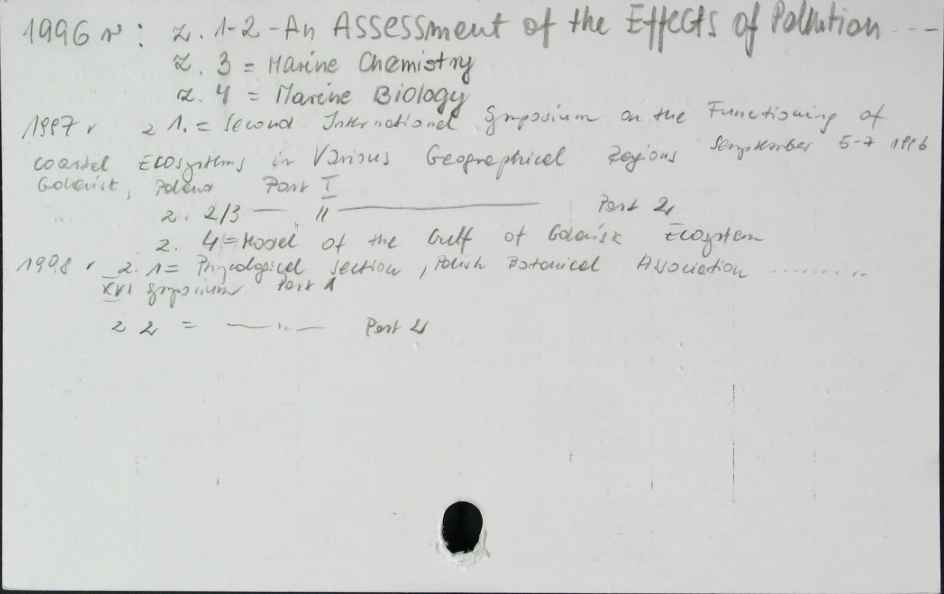 1996 r: z. 1-2 - An Assessment of the Effects of Pollution ---
z. 3 = Marine Chemistry
z. 4 = Marine Biology
1997 r z 1. = Second International Symposium on the Functioning of
coastal Ecosystems in Various Geographical Regions September 5-7 1996
Gdańsk, Poland Part I
z. 2/3 — " — Part 2
z. 4 = Model of the Gulf of Gdańsk Ecosystem
1998 r z. 1 = Phycological section, Polish Botanical Association ..........
XVI Symposium Part 1
z 2 = — " — Part 2